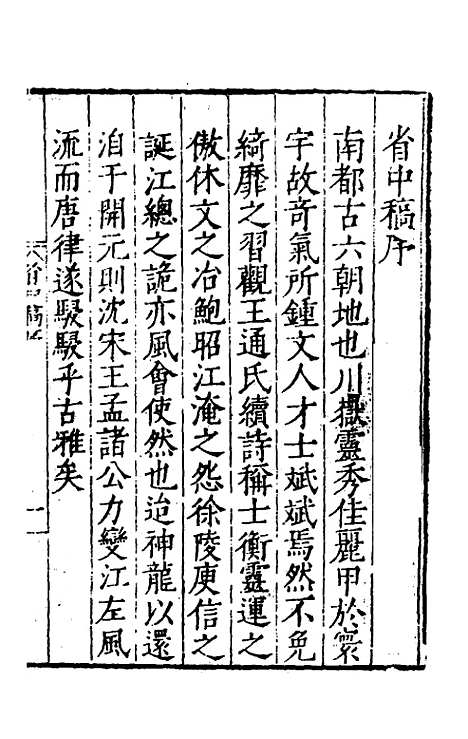 省中稿序
南都古六朝地也川嶽靈秀佳麗甲於寰
宇故竒氣所鍾文人才士斌斌焉然不免
綺靡之習觀王通氏續詩稱士衡靈運之
傲休文之冶鮑昭江淹之怨徐陵庾信之
誕江總之詭亦風會使然也迨神龍以還
洎于開元則沈宋王孟諸公力變江左風
流而唐律遂駸駸乎古雅矣